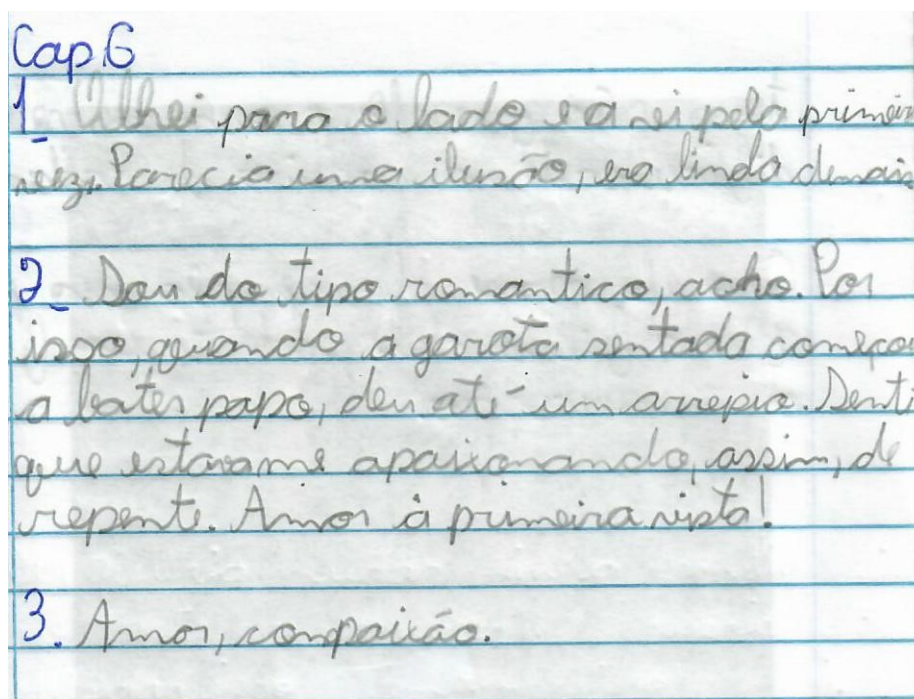 Cap.6
1_ Olhei para o lado e a vi pela primeir
vez. Parecia uma ilusão, era linda demais
2_ Sou do tipo romantico, acho. Por
isso, quando a garota sentada começou
a bater papo, deu até um arrepio. Senti
que estava me apaixonando, assim, de
repente. Amor à primeira vista!
3. Amor, compaixão.